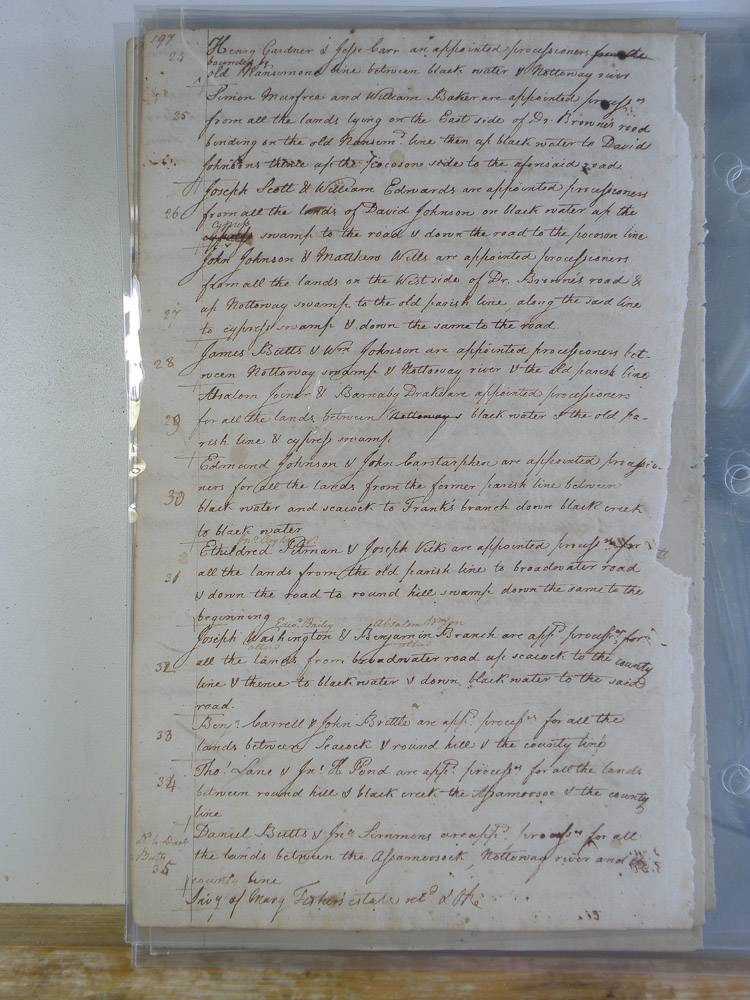 197
24 Henry Gardner & Jesse Carr are appointed processioners from the
bounded by
old Nansemond line between black water & Nottoway river
25 Simon Murfree and William Baker are appointed process.rs
from all the lands lying on the East side of Dr. Browne's road
binding on the old Nansemd. line then up black water to David
Johnsons thence up the pocoson side to the aforesaid road
26 Joseph Scott & William Edwards are appointed processioners
from all the lands of David Johnson on black water up the
cypress
swamp to the road & down the road to the pocoson line
John Johnson & Matthew Wills are appointed processioners
from all the lands on the West side of Dr. Browne's road &
up Nottoway swamp to the old parish line, along the said line
27 to cypress swamp & down the same to the road
28 James Butts & Wm. Johnson are appointed processioners bet-
ween Nottoway swamp & Nottoway river & the old parish line
Absalom Joiner & Barnaby Drake are appointed processioners
29 for all the lands between Nottoway s black water & the old pa-
rish line & cypress swamp
Edmund Johnson & John Carstarphen are appointed processio-
30 ners for all the lands from the former parish line between
black water and seacock to Frank's branch down black creek
to black water
Etheldred Pitman & Joseph Vick are appointed process.rs for
31 all the lands from the old parish line to broadwater road
& down the road to round hill swamp down the same to the
beginning
Edwd. Bailey Absalom
Joseph Washington & Benjamin Branch are appd. process.rs for
32 all the lands from broadwater road up seacock to the county
line & thence to black water & down black water to the said
road.
33 Benja. Carrell & John Brittle are appd. process.rs for all the
lands between Seacock & round hill & the county line
34 Thos. Lane & Jno. H. Pond are appd. process.rs for all the lands
between round hill & black creek the Assamoosoc & the county
line
Daniel Butts & Jno. Simmons are appd. process.rs for all
35 the lands between the Assamoosock, Nottoway river and
county line
Invy. of Mary estate retd. & OR